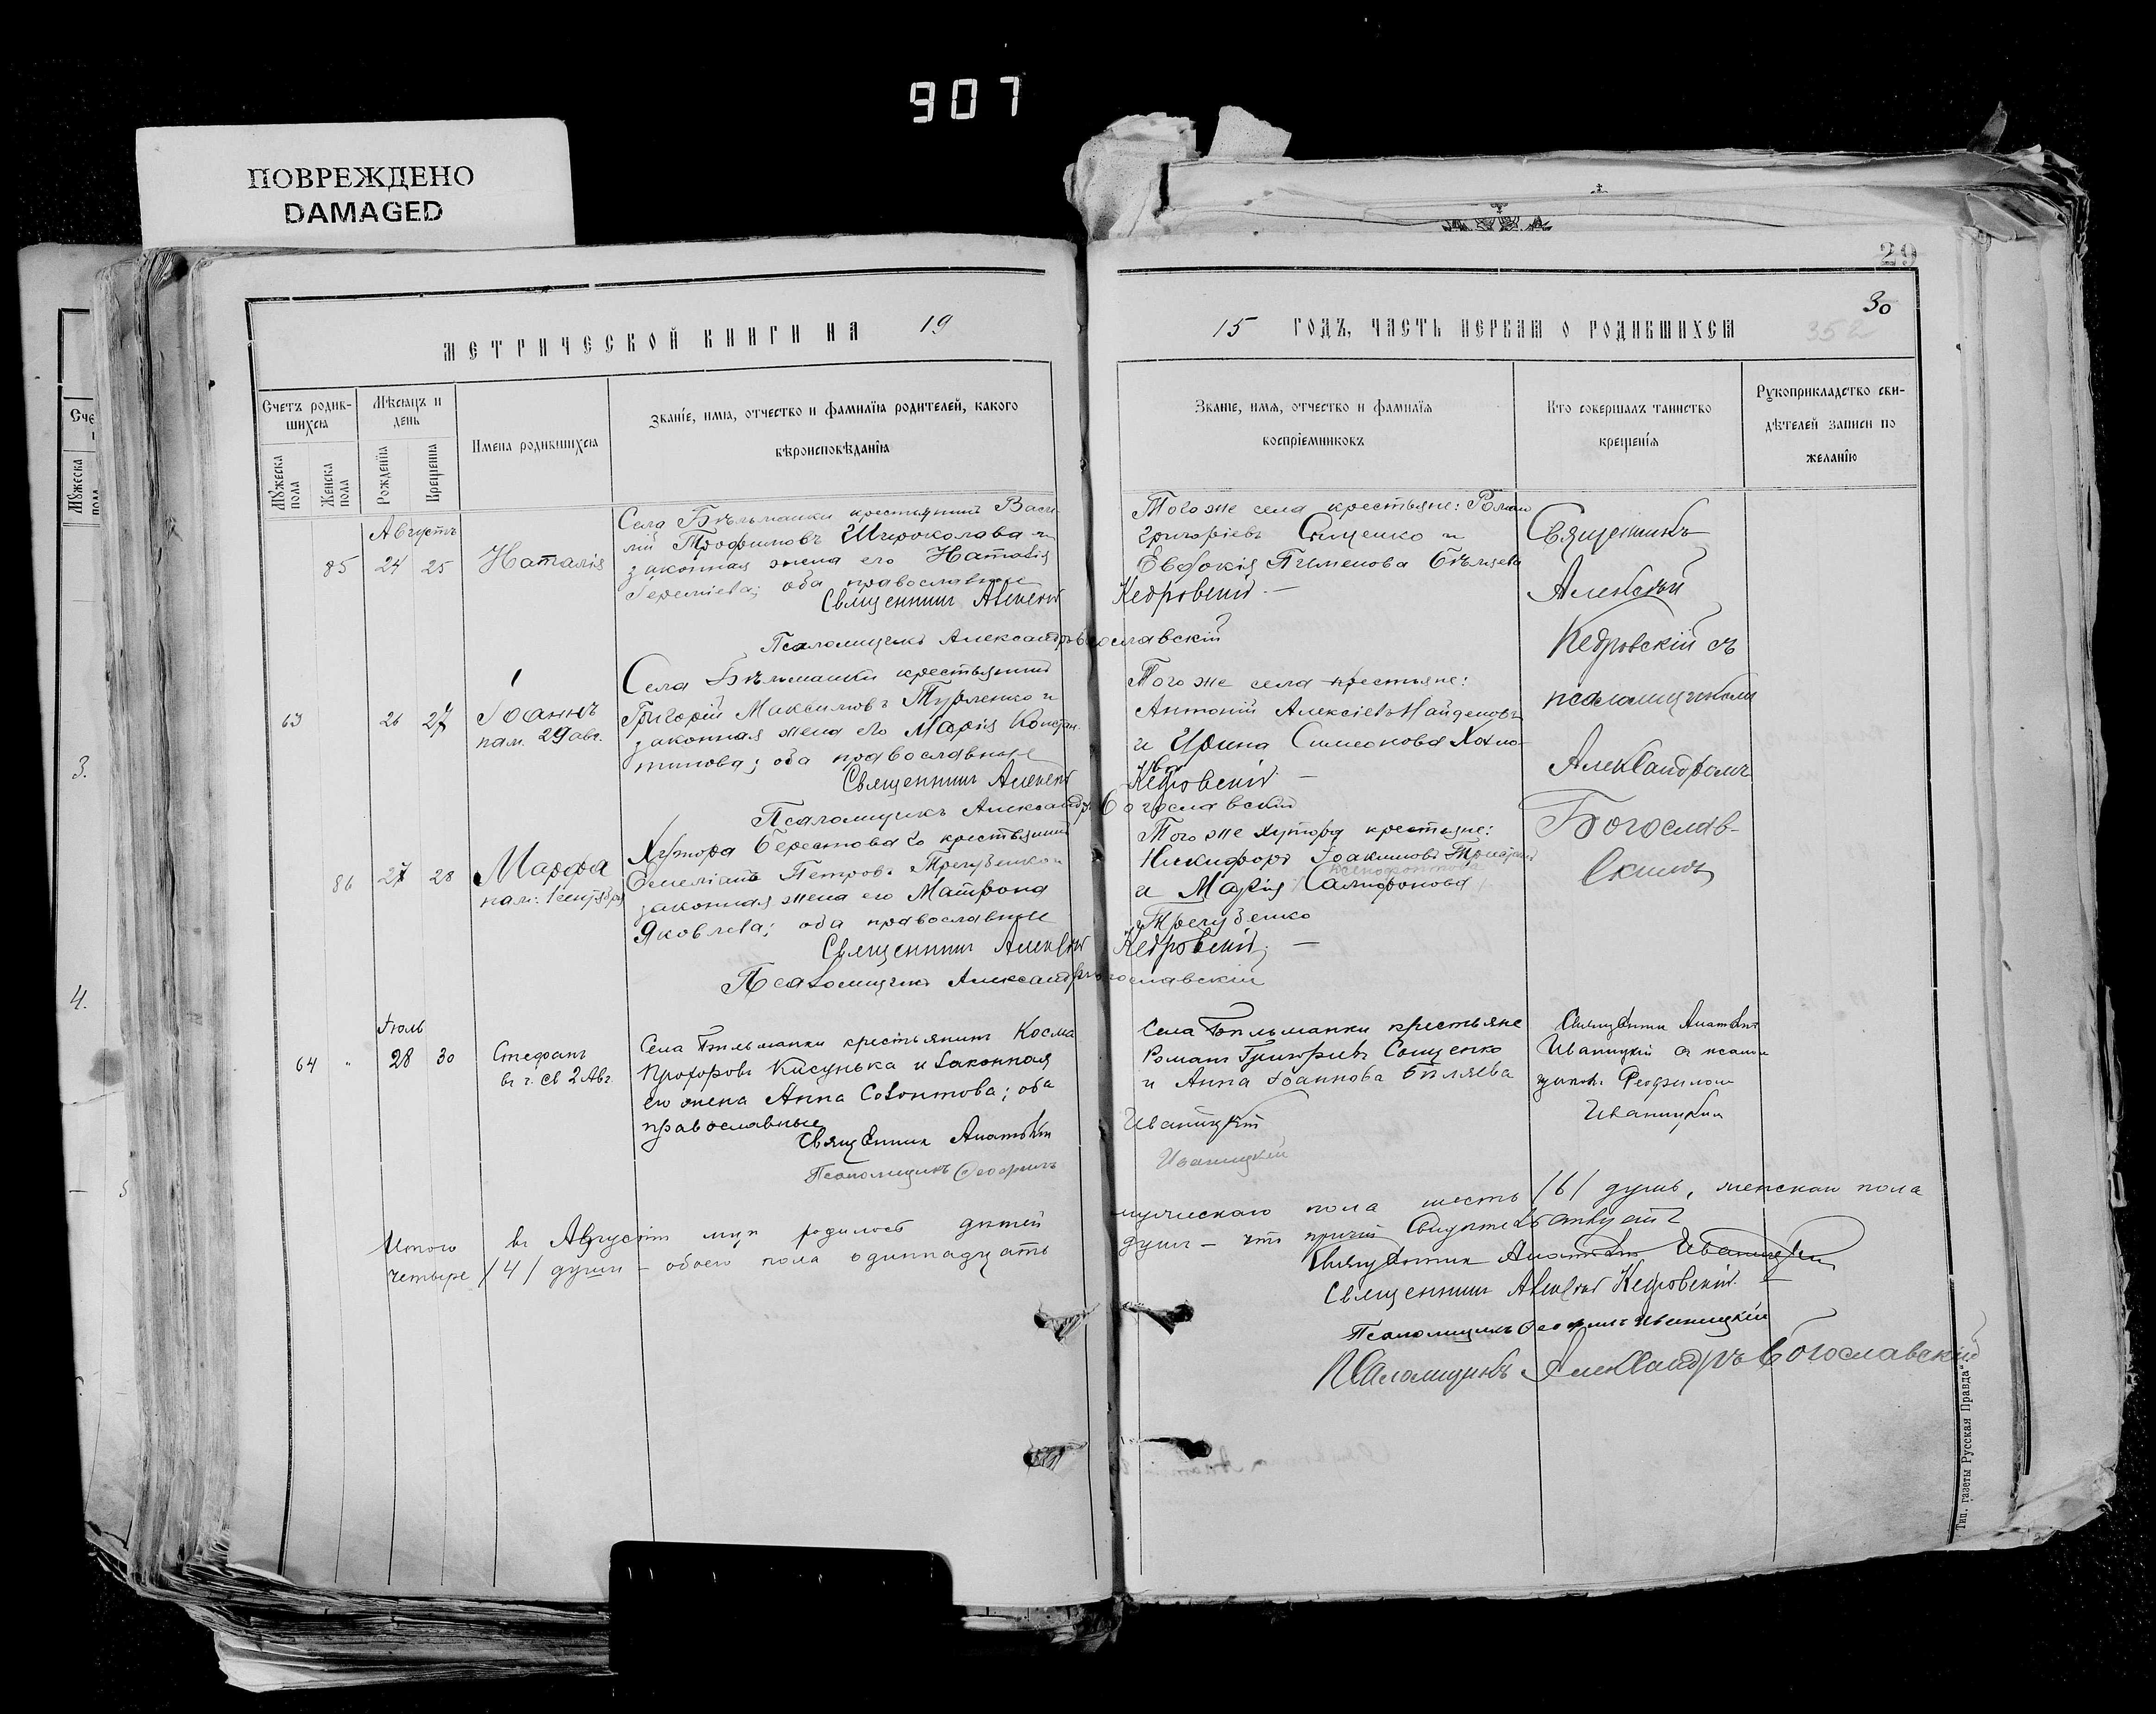 907
ПОВРЕЖДЕНО
DAMAGED
29
30
352
МЕТРИЧЕСКОЙ КНИГИ НА 19
15 ГОДЪ, ЧАСТЬ ПЕРВАЯ О РОДИВШИХСЯ
Счетъ родив-
шихся
Мѣсяцъ и
день
Имена родившихся
Званіе, имя, отчество и фамилія родителей, какого
вѣроисповѣданія
Мужеска пола
Женска пола
Рожденія
Крещенія
Званіе, имя, отчество и фамилія
воспріемниковъ
Кто совершалъ таинство
крещенія
Рукоприкладство сви-
дѣтелей записи по
желанію
Августъ
85 24 25 Наталія
Села Бѣльманки крестьянинъ Васи-
лій Трофимовъ Широколава и
законная жена его Наталія
Іереміева; оба православные
Священникъ Алексій Кедровскій.
Псаломщикъ Александръ Богославскій
Того же села крестьяне: Романъ
Григоріевъ Сощенко и
Евдокія Пименова Бѣляева
Священникъ
Алексій
Кедровскій съ
псаломщикомъ
Александромъ
Богослав-
скимъ
63 26 27 Іоаннъ
пам. 29 авг.
Села Бѣльманки крестьянинъ
Григорій Максимовъ Турленко и
законная жена его Марія Констан-
тинова; оба православные
Священникъ Алексій Кедровскій
Псаломщикъ Александръ Богославскій
Того же села крестьяне:
Антоній Алексіевъ Найденовъ
и Ирина Симеонова
86 27 28 Марфа
пам. 1 сентября
Хутора Берестоваго крестьянинъ
Емеліанъ Петровъ Трегубенко и
законная жена его Матрона
Яковлева; оба православные
Священникъ Алексій Кедровскій.
Псаломщикъ Александръ Богославскій
Того же хутора крестьяне:
Никифоръ Іоакимовъ
и Марія
Трегубенко
Іюль
64 " 28 30 Стефанъ
въ ч. св 2 Авг.
Села Бѣльманки крестьянинъ Косма
Прохоровъ Кисунька и законная
его жена Анна Созонтова; оба
православные
Священникъ Анатолій Иваницкій
Псаломщикъ Феофилъ Иваницкій
Села Бѣльманки крестьяне
Романъ Григорьевъ Сощенко
и Анна Іоаннова Бѣляева
Священник Анатолій
Иваницкій съ псалом-
щиком. Феофилом
Иваницким
Итого въ Августѣ м-цѣ родилось дѣтей мужескаго пола шесть /6/ душъ, женскаго пола
четыре /4/ души – обоего пола одиннадцать душъ – что причтъ свидѣтельствуетъ
Священник Анатолій Иваницкій
Священникъ Алексій Кедровскій.
Псаломщикъ Феофилъ Иваницкій
Псаломщикъ Александръ Богославскій
Тип. газеты Русская Правда"
Сче
Мужеска пола
3.
4.